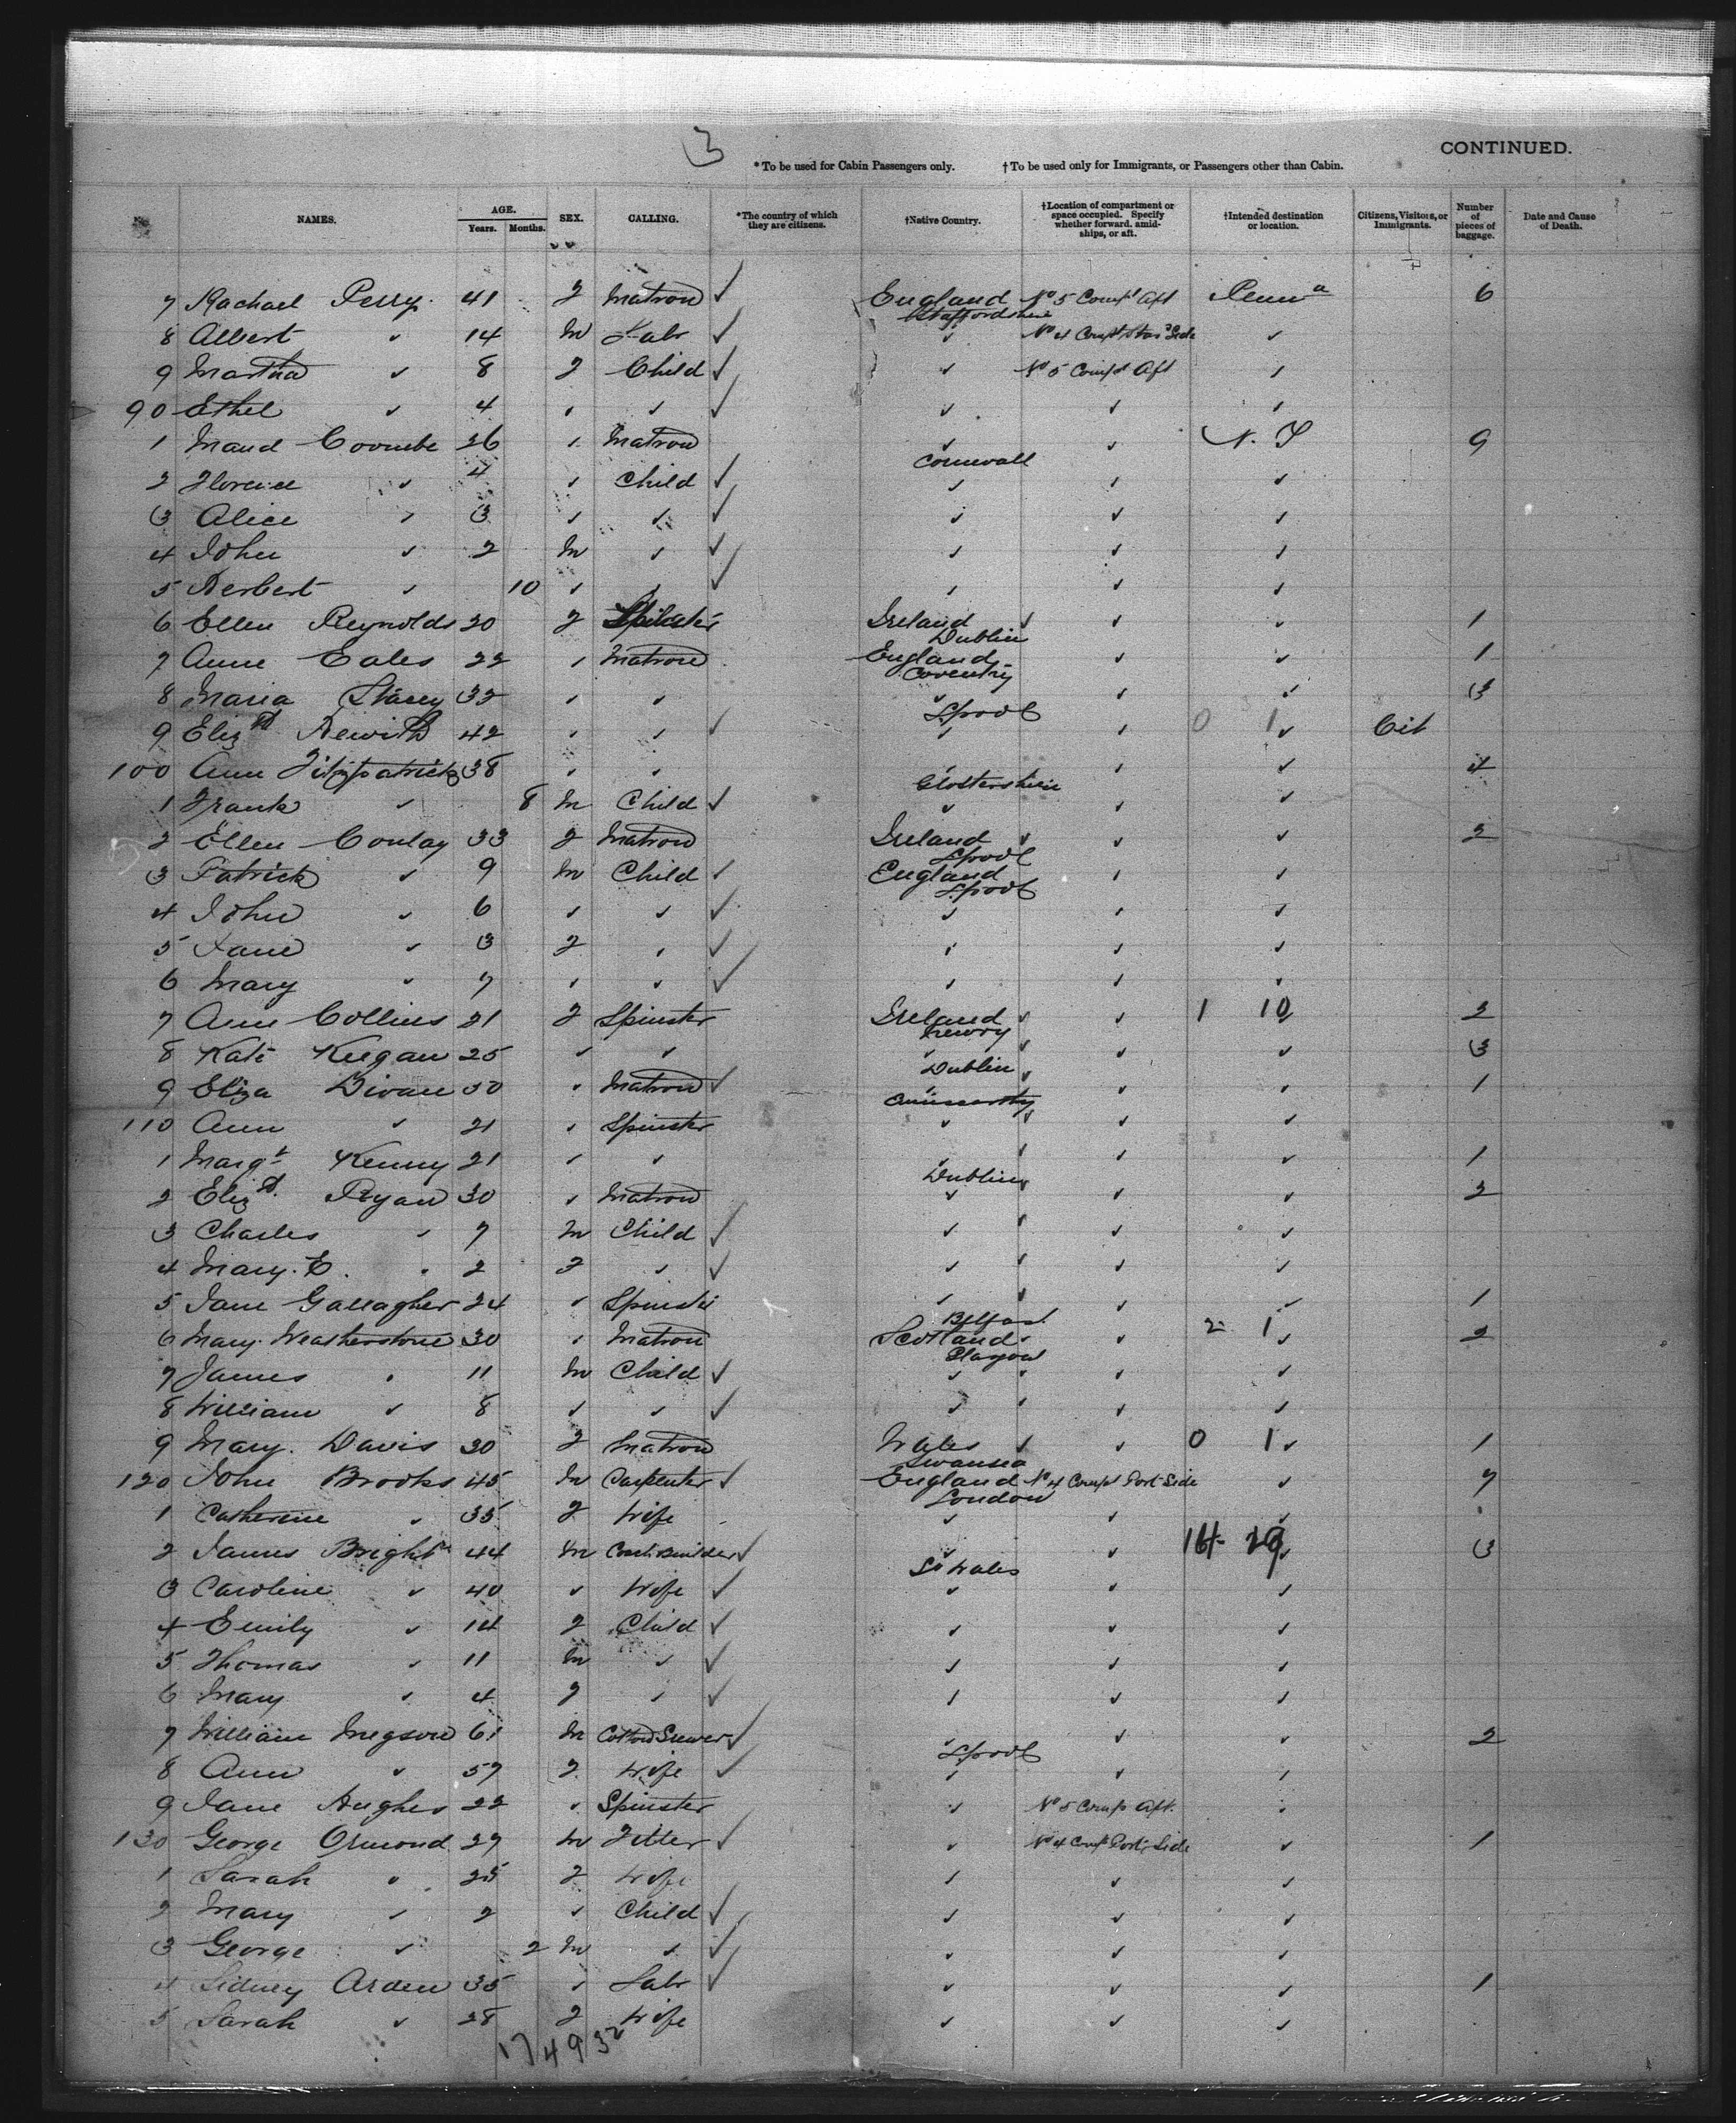 3
CONTINUED.
* To be used for Cabin Passengers only. † To be used only for Immigrants, or Passengers other than Cabin.
No. NAMES. AGE. Years. Months. SEX. CALLING. *The country of which they are citizens. †Native Country. †Location of compartment or space occupied. Specify whether forward, amidships, or aft. †Intended destination or location. Citizens, Visitors, or Immigrants. Number of pieces of baggage. Date and Cause of Death.
7 Rachael Perry 41 F Matron ✓ England Staffordshire No 5 Compt Aft Penna 6
8 Albert ✓ 14 M Labr ✓ ✓ No 4 Compt Star Side ✓
9 Martha ✓ 8 F Child ✓ ✓ No 5 Compt Aft ✓
90 Ethel ✓ 4 ✓ ✓ ✓ ✓ ✓ ✓
1 Maud Coombe 26 ✓ Matron ✓ Cornwall ✓ N. Y 9
2 Florence ✓ 4 ✓ Child ✓ ✓ ✓ ✓
3 Alice ✓ 3 ✓ ✓ ✓ ✓ ✓ ✓
4 John ✓ 2 M ✓ ✓ ✓ ✓ ✓
5 Herbert ✓ 10 ✓ ✓ ✓ ✓ ✓ ✓
6 Ellen Reynolds 20 F Spinster Ireland Dublin ✓ ✓ ✓ 1
7 Anne Eales 22 ✓ Matron England Coventry ✓ ✓ 1
8 Maria Stacey 32 ✓ ✓ ✓ Lpool ✓ ✓ 3
9 Elizth 42 ✓ ✓ ✓ ✓ ✓ 0 1 ✓ Cit
100 Ann Fitzpatrick 38 ✓ ✓ ✓ Glostershire ✓ ✓ 4
1 Frank ✓ 8 M Child ✓ ✓ ✓ ✓
2 Ellen Conlay 33 F Matron Ireland Lpool ✓ ✓ ✓ 2
3 Patrick ✓ 9 M Child ✓ England Lpool ✓ ✓
4 John ✓ 6 ✓ ✓ ✓ ✓ ✓ ✓
5 Jane ✓ 3 F ✓ ✓ ✓ ✓ ✓
6 Mary ✓ 7 ✓ ✓ ✓ ✓ ✓ ✓
7 Ann Collins 21 F Spinster Ireland Newry ✓ ✓ 1 10 ✓ 2
8 Kate Keegan 25 ✓ ✓ ✓ Dublin ✓ ✓ ✓ 3
9 Eliza 30 ✓ Matron ✓ ✓ ✓ ✓ 1
110 Ann ✓ 21 ✓ Spinster ✓ ✓ ✓ ✓
1 Margt Kenny 21 ✓ ✓ ✓ Dublin ✓ ✓ ✓ 1
2 Elizth Ryan 30 ✓ Matron ✓ ✓ ✓ ✓ 2
3 Charles ✓ 7 M Child ✓ ✓ ✓ ✓ ✓
4 Mary. E. ✓ 2 F ✓ ✓ ✓ ✓ ✓ ✓
5 Jane Gallagher 24 ✓ Spinster ✓ Belfast ✓ ✓ ✓ 1
6 Mary Weatherstone 30 ✓ Matron Scotland Glasgow ✓ ✓ 2 1 ✓ 2
7 James ✓ 11 M Child ✓ ✓ ✓ ✓ ✓
8 William ✓ 8 ✓ ✓ ✓ ✓ ✓ ✓ ✓
9 Mary. Davis 20 F Matron Wales Swansea ✓ ✓ 0 1 ✓ 1
120 John Brooks 45 M Carpenter ✓ England London No 4 Compt Port Side ✓ 7
1 Catherine ✓ 35 F Wife ✓ ✓ ✓
2 James Bright 44 M Coach Builder ✓ ✓ So Wales ✓ 14 ✓ 3
3 Caroline ✓ 40 ✓ Wife ✓ ✓ ✓ ✓
4 Emily ✓ 14 F Child ✓ ✓ ✓ ✓
5 Thomas ✓ 11 M ✓ ✓ ✓ ✓ ✓
6 Mary ✓ 4 F ✓ ✓ ✓ ✓ ✓
7 William Megson 61 M ✓ ✓ Lpool ✓ ✓ 2
8 Ann ✓ 57 F Wife ✓ ✓ ✓ ✓
9 Jane Hughes 22 ✓ Spinster ✓ No 5 Comp Aft. ✓
130 George Ormond 27 M Fitter ✓ ✓ No 4 Comp Port Side ✓ 1
1 Sarah ✓ 25 F Wife ✓ ✓ ✓
2 Mary ✓ 2 ✓ Child ✓ ✓ ✓ ✓
3 George ✓ 2 M ✓ ✓ ✓ ✓ ✓
4 Sidney Arden 35 ✓ Labr ✓ ✓ ✓ ✓ 1
5 Sarah ✓ 28 F Wife ✓ ✓ ✓
17 49 32